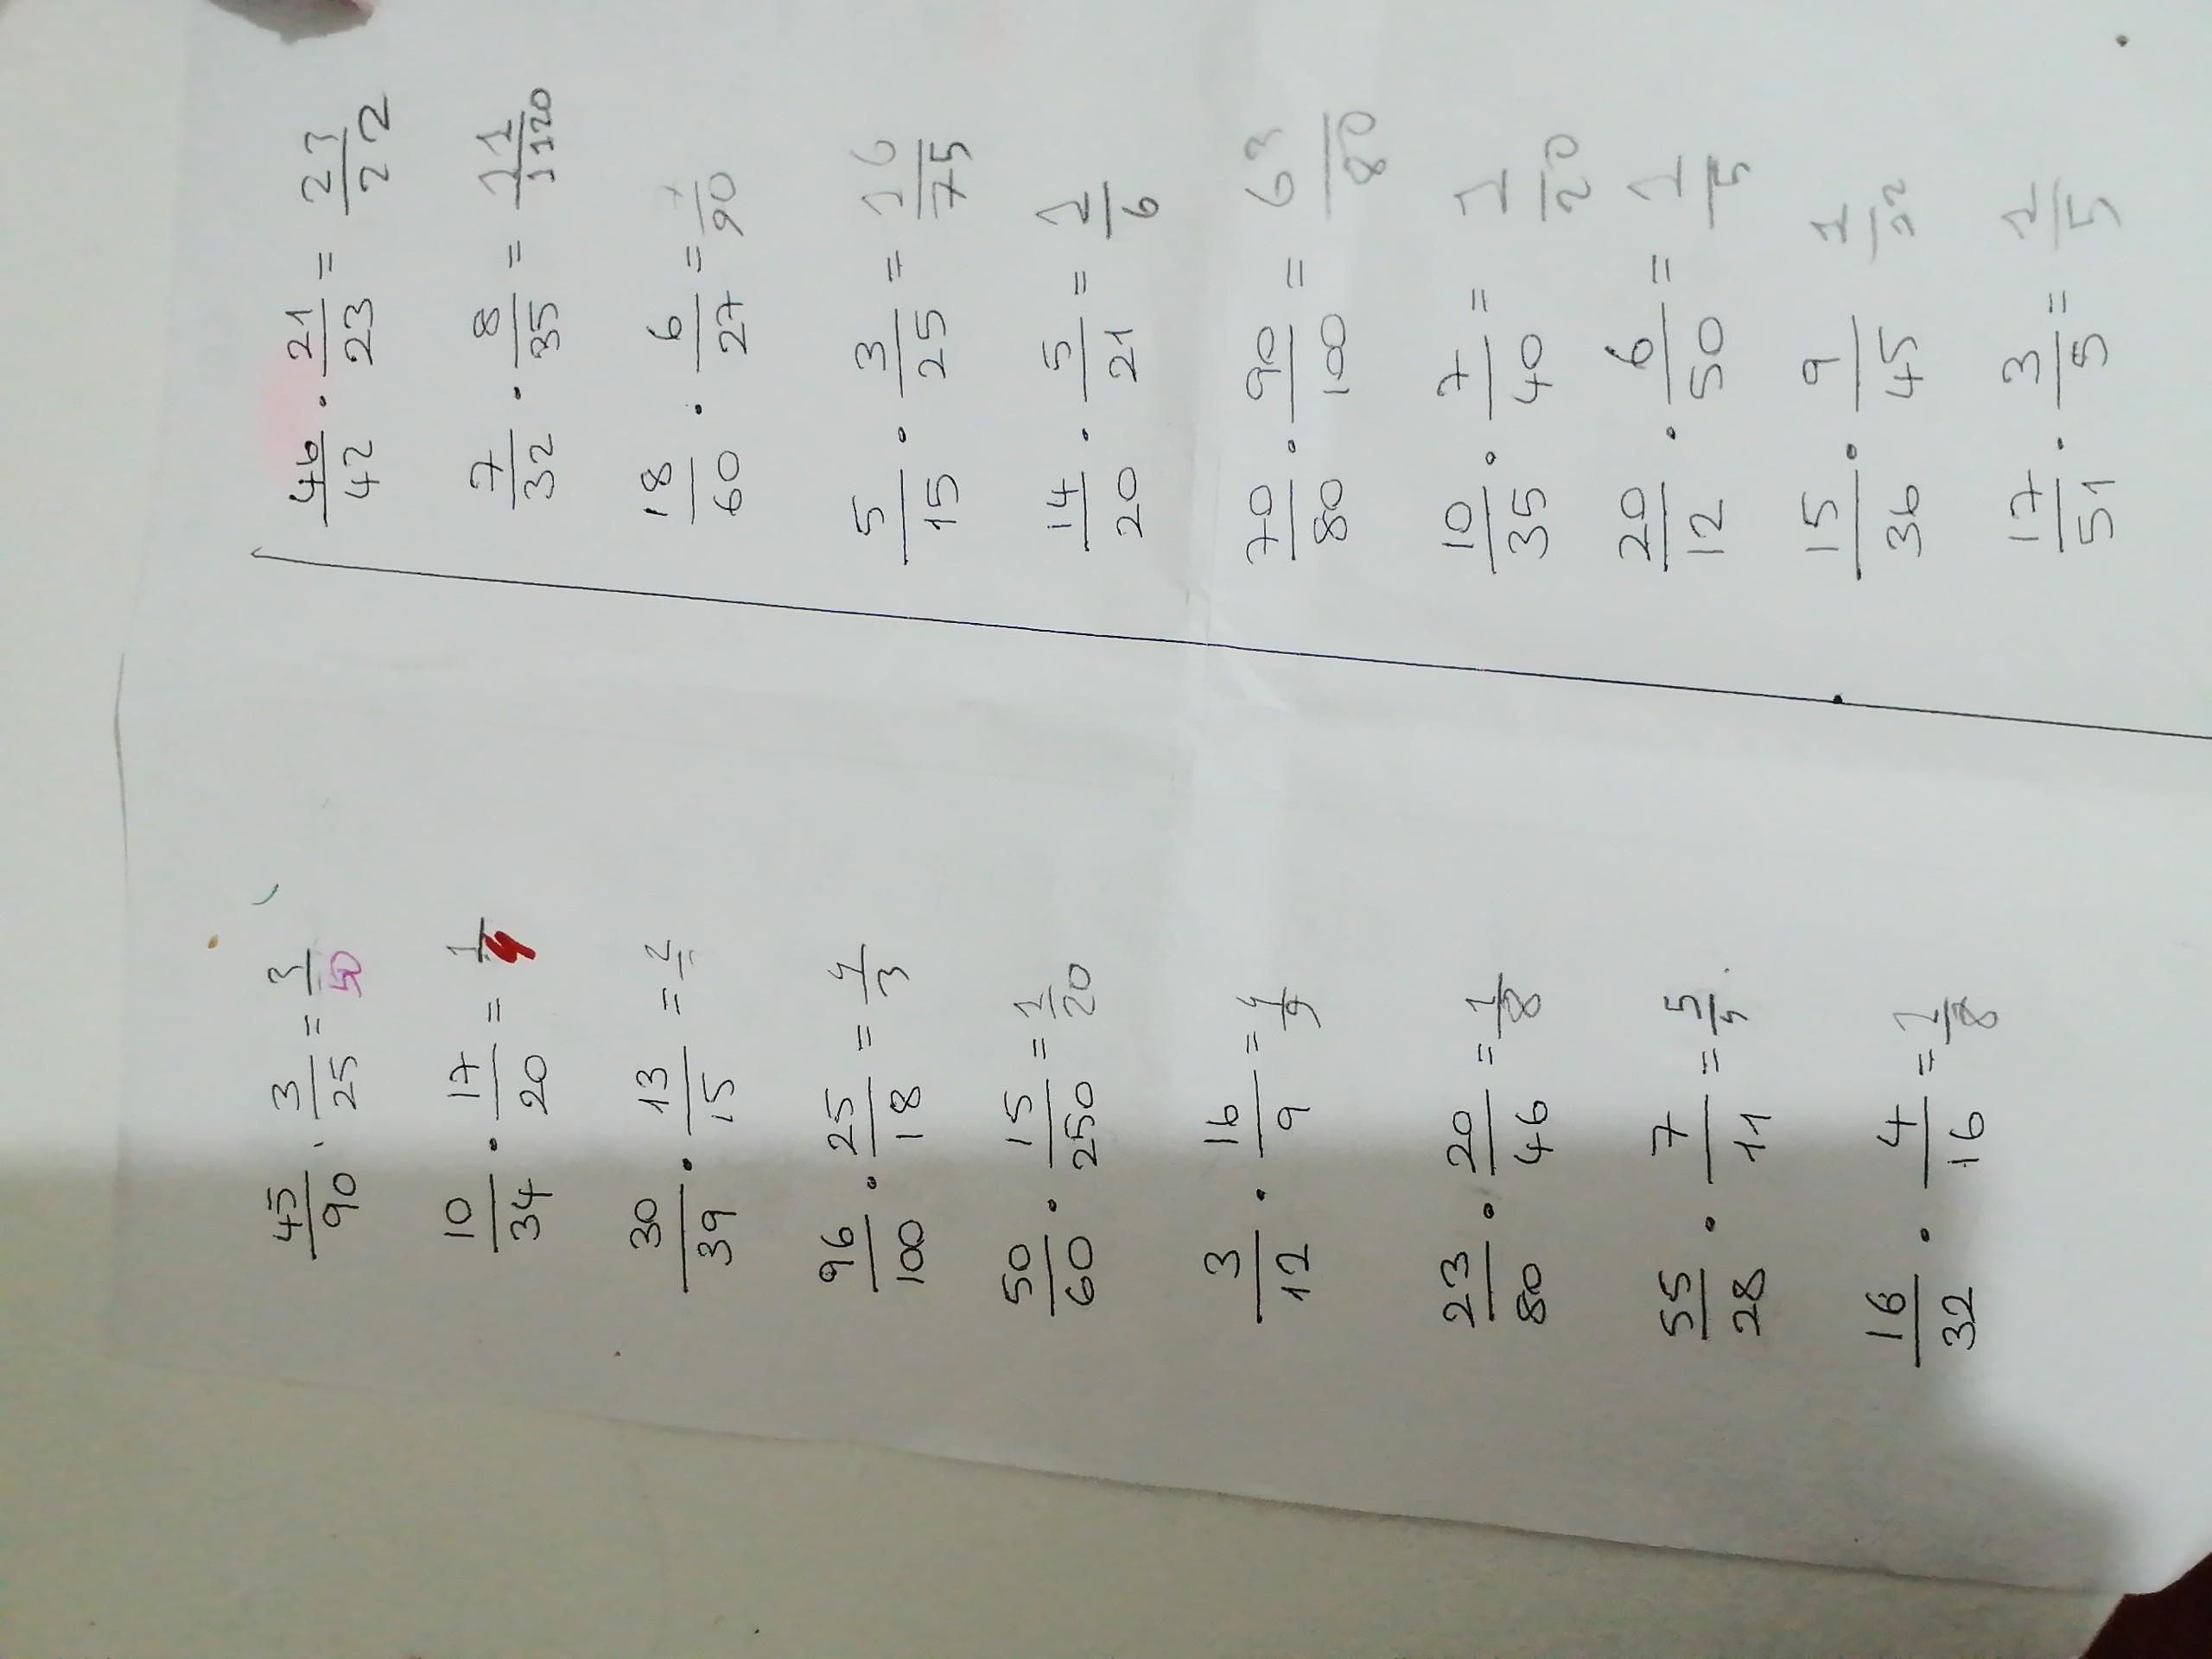 45/90 · 3/25 = 3/50
10/34 · 17/20 = 1/4
30/39 · 13/15 = 2/
96/100 · 25/18 = 4/3
50/60 · 15/250 = 1/20
3/12 · 16/9 = 4/9
23/80 · 20/46 = 1/8
55/28 · 7/11 = 5/4
16/32 · 4/16 = 1/8
46/42 · 21/23 = 23/22
7/32 · 8/35 = 11/1120
18/60 · 6/27 = /90
5/15 · 3/25 = 16/75
14/20 · 5/21 = 1/6
70/80 · 90/100 = 63/80
10/35 · 7/40 = 1/20
20/12 · 6/50 = 1/5
15/36 · 9/45 1/12
17/51 · 3/5 = 1/5